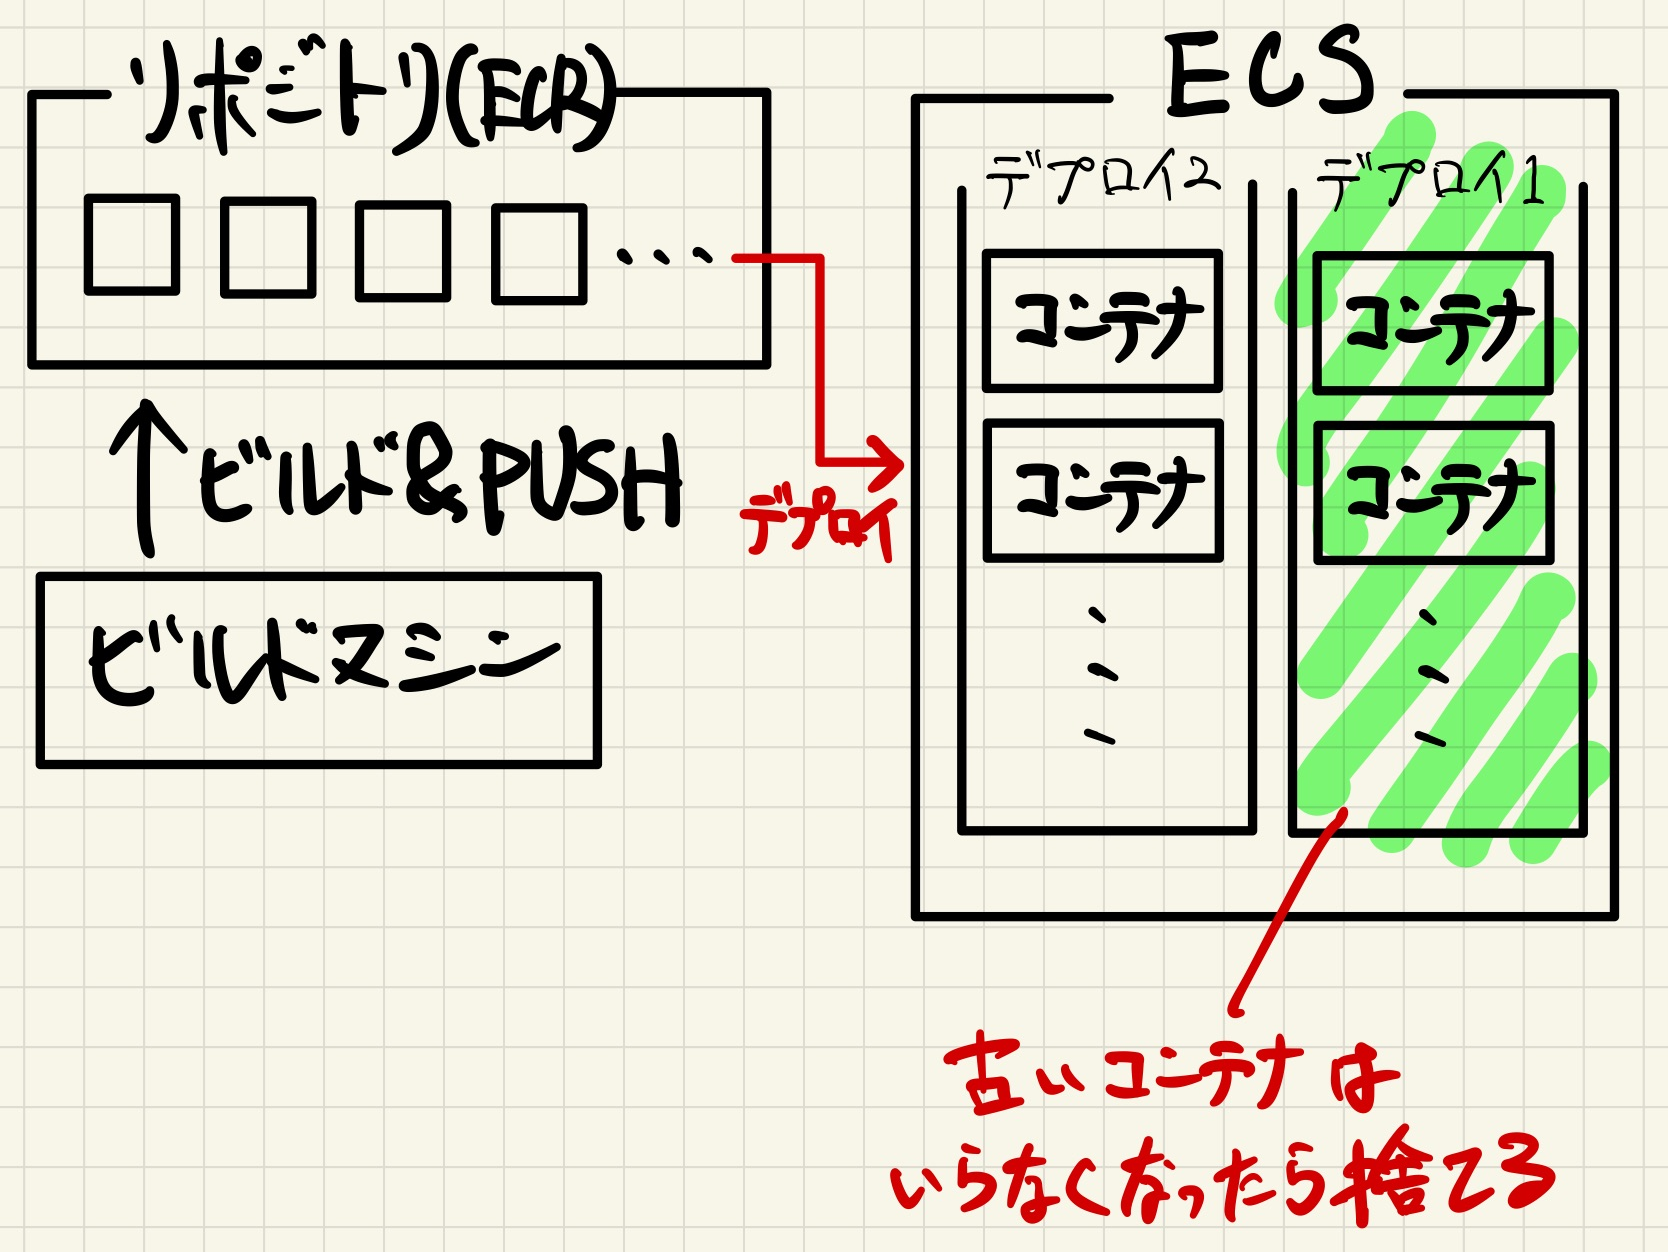 リポジトリ(ECR)
ビルド&PUSH
ビルドマシン
デプロイ
ECS
デプロイ2
コンテナ
コンテナ
デプロイ1
コンテナ
コンテナ
古いコンテナは
いらなくなったら捨てる